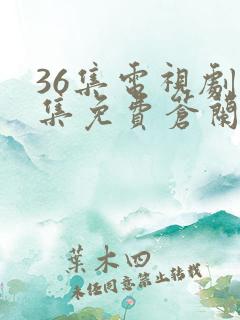 36集电視劇
集免費答蘭
葉木四
未經同意禁止转载